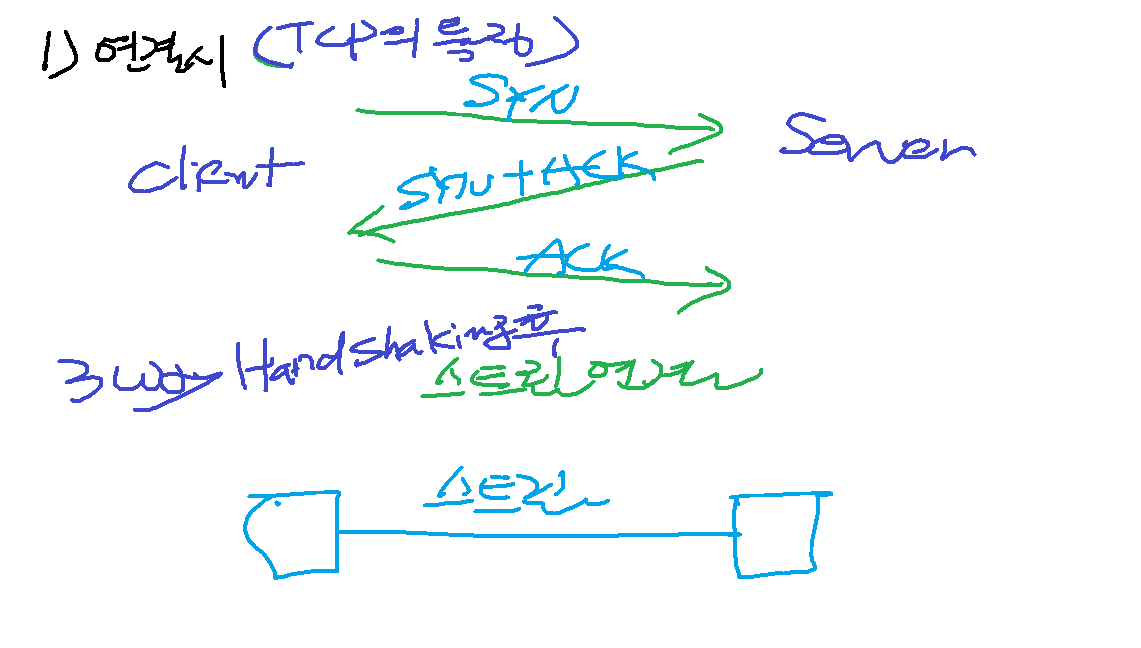 1) 연결시 (TCP의 특징)
SYN
Client
Server
SYN + ACK
ACK
3 way Hand Shaking 후
스트림 연결
스트림